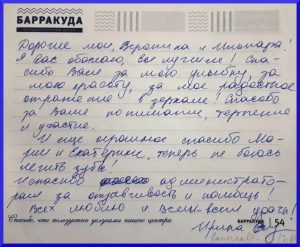 БАРРАКУДА
Дорогие мои, Вероника и Миннара!
Я вас обожаю, вы лучшие! Спа-
сибо Вам за мою улыбку, за
мою красоту, за мое радостное
отражение в зеркале! Спасибо
за Ваше понимание, терпение
и участие.
И еще огромное спасибо Ма-
рии и Екатерине, теперь не боюсь
лечить зубы!
И спасибо администрато-
рам за отзывчивость и помощь!
Всех люблю и всем-всем удачи!
Спасибо, что пользуетесь услугами нашего центра
БАРРАКУДА 54
Ирина